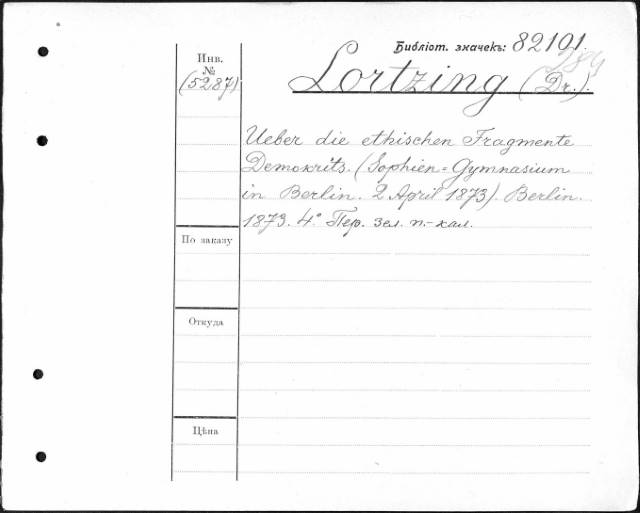 Библіот. значекъ: 82101.
289
Инв.
№
(5287)
Lortzing (Dr.).
Ueber die ethischen Fragmente
Demokrits. (Sophien=Gymnasium
in Berlin. 2 April 1873). Berlin.
1873. 4°. Пер. зел. п.-кал.
По заказу
Откуда
Цѣна